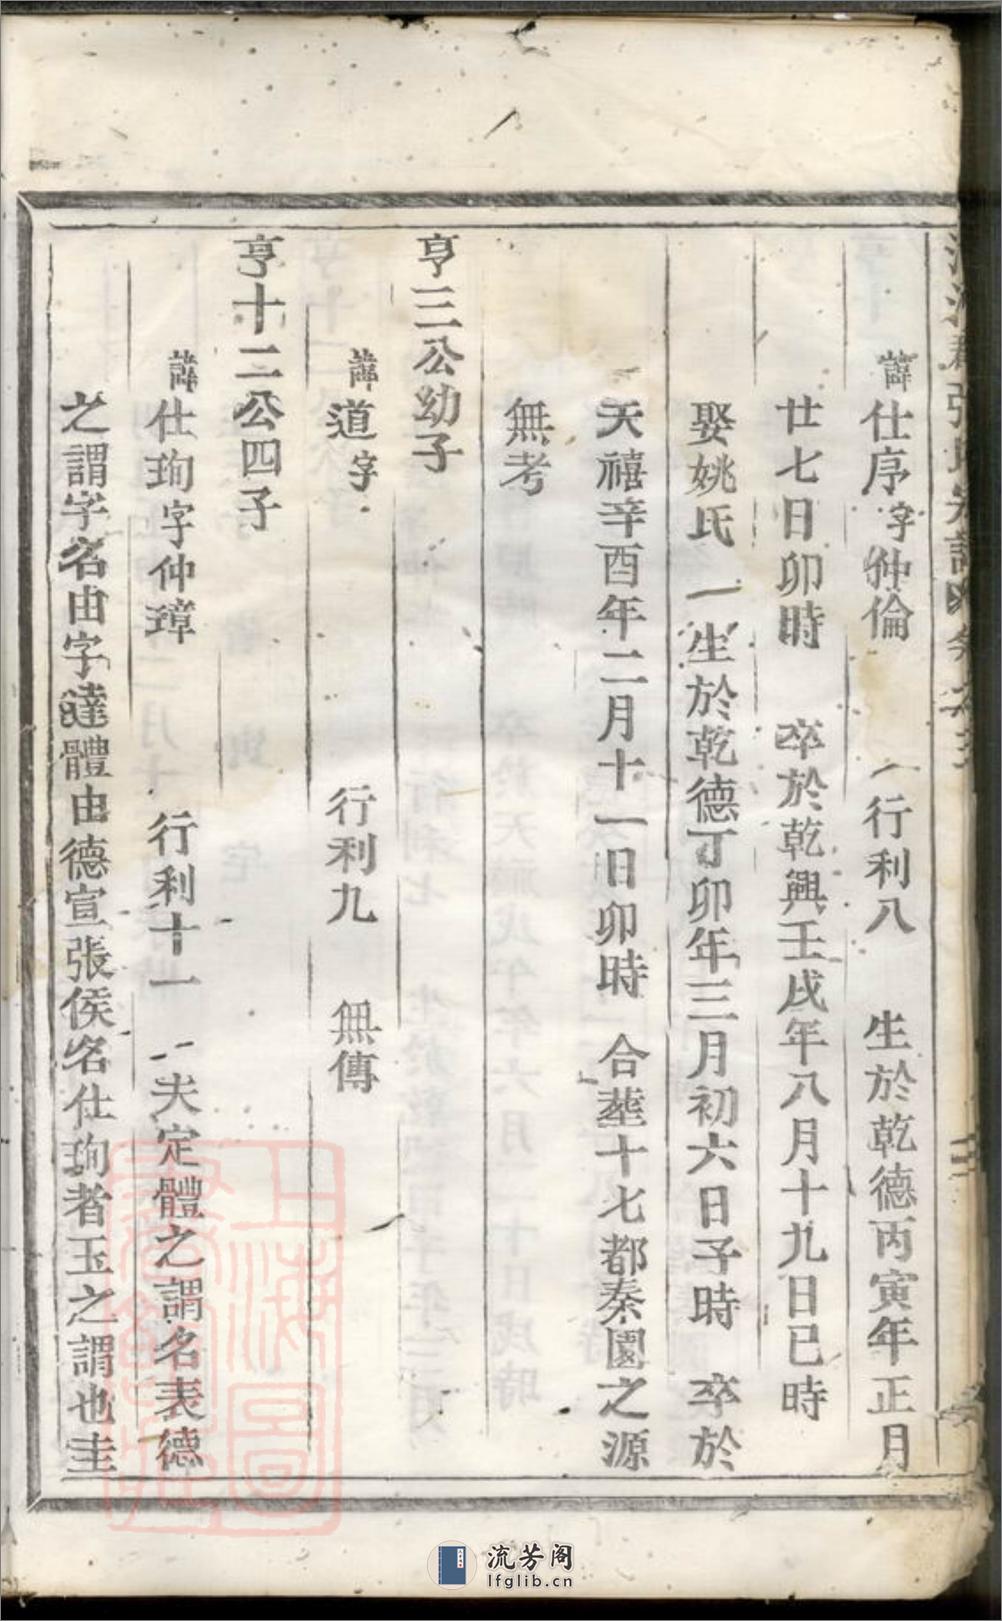 諱仕序字仲倫 行利八 生於乾德丙寅年正月
廿七日卯時 卒於乾興壬戌年八月十九日巳時
娶姚氏 生於乾德丁卯年三月初六日子時 卒於
天禧辛酉年二月十一日卯時 合葬十七都秦園之源
無考
亨三公幼子
諱道字 行利九 無傳
亨十二公四子
諱仕珣字仲璋 行利十一 夫定體之謂名表德
之謂字名由字達體由德宣張侯名仕珣者玉之謂也圭
上海圖書館藏
流芳阁
lfglib.cn